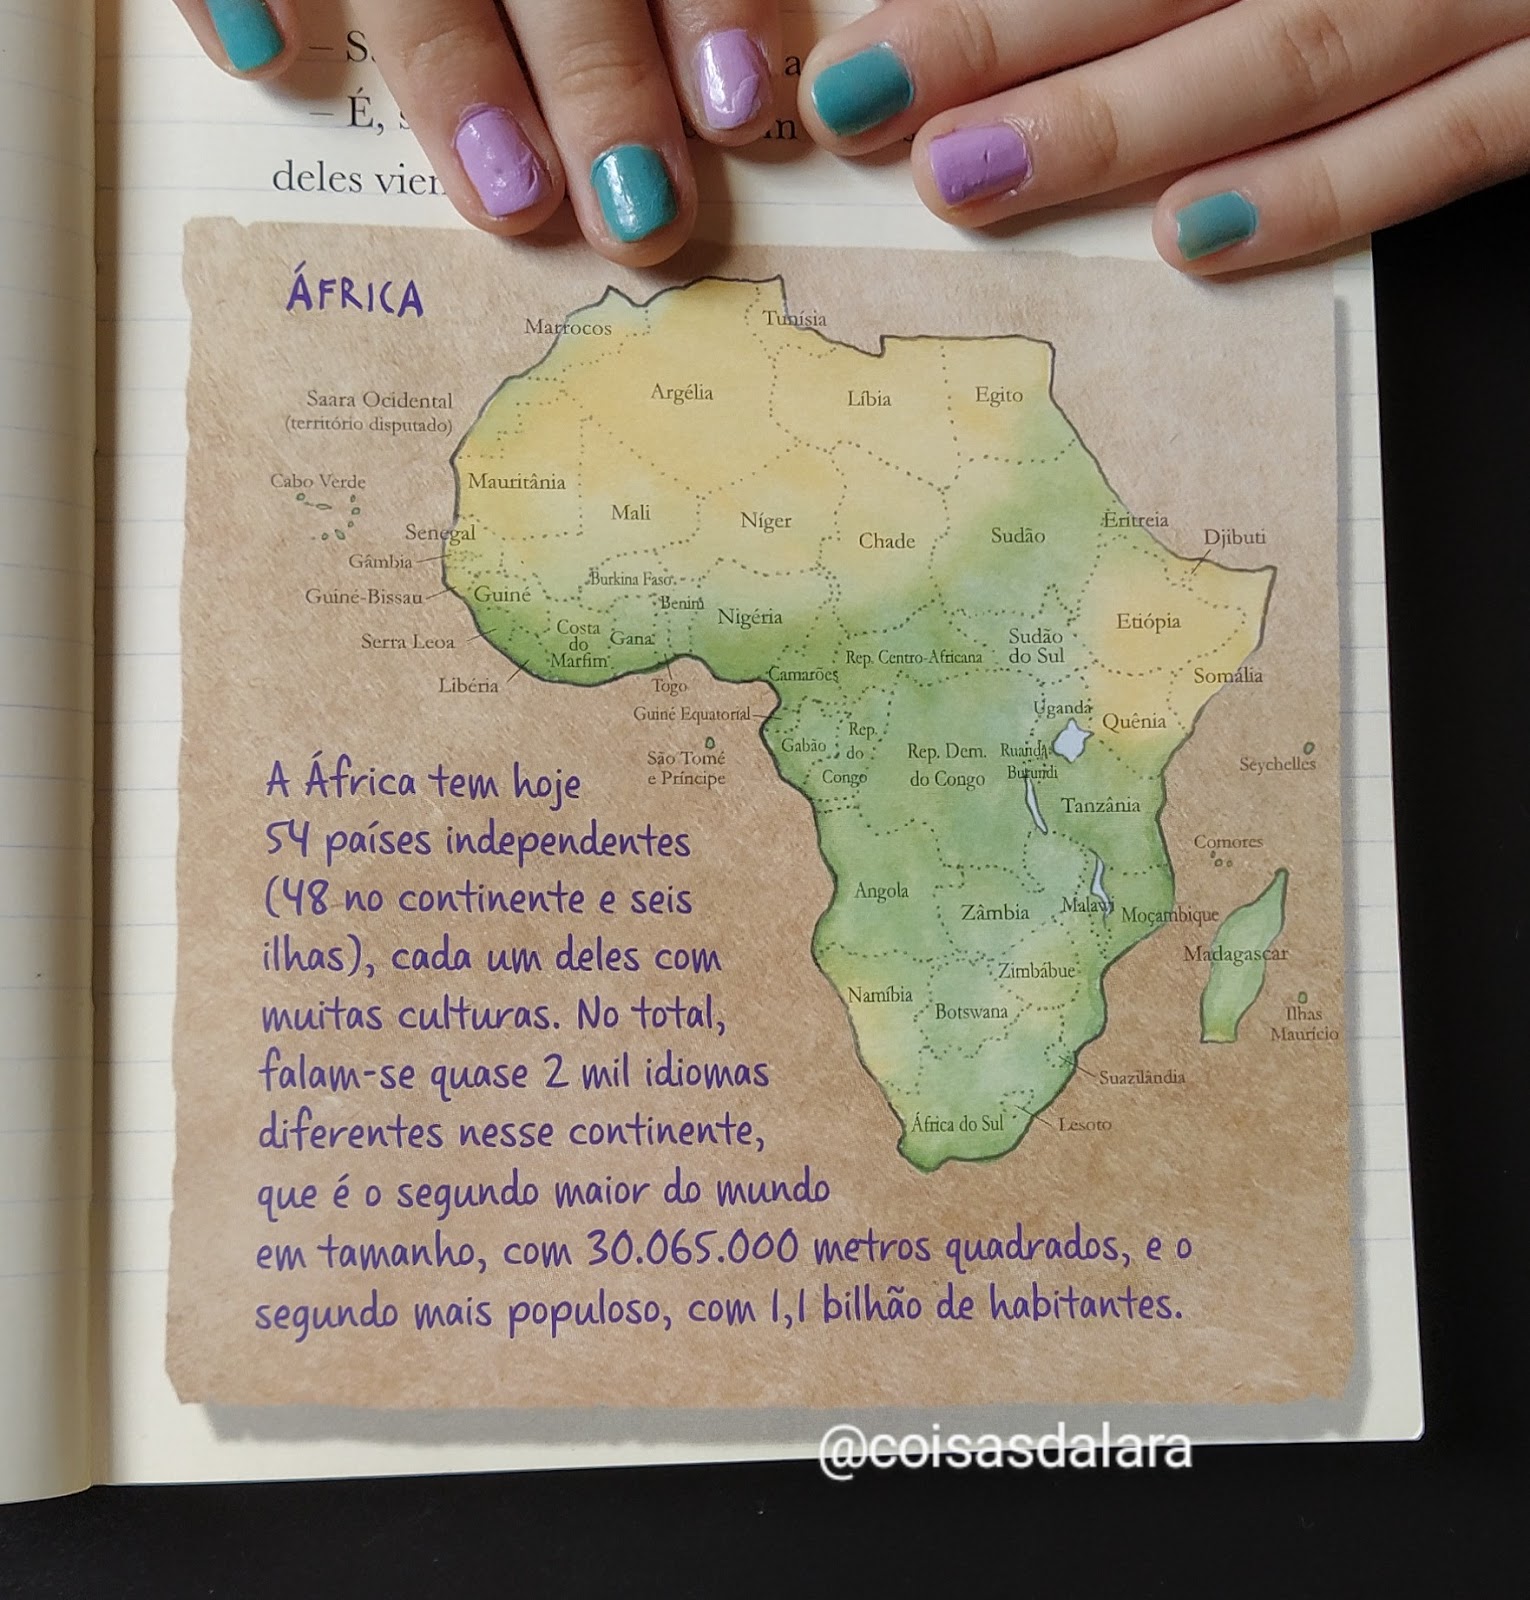 – S
– É, s
a
m
deles vien
ÁFRICA
Marrocos
Tunísia
Argélia
Líbia
Egito
Saara Ocidental
(território disputado)
Cabo Verde
Mauritânia
Mali
Níger
Chade
Sudão
Eritreia
Djibuti
Senegal
Gâmbia
Guiné-Bissau
Guiné
Burkina Faso
Benim
Nigéria
Etiópia
Serra Leoa
Costa
do
Marfim
Gana
Sudão
do Sul
Rep. Centro-Africana
Camarões
Somália
Libéria
Togo
Guiné Equatorial
Uganda
Quênia
São Tomé
e Príncipe
Gabão
Rep.
do
Congo
Rep. Dem.
do Congo
Ruanda
Burundi
Tanzânia
Seychelles
Comores
Angola
Zâmbia
Malawi
Moçambique
Madagascar
Zimbábue
Namíbia
Botswana
Ilhas
Maurício
Suazilândia
África do Sul
Lesoto
A África tem hoje
54 países independentes
(48 no continente e seis
ilhas), cada um deles com
muitas culturas. No total,
falam-se quase 2 mil idiomas
diferentes nesse continente,
que é o segundo maior do mundo
em tamanho, com 30.065.000 metros quadrados, e o
segundo mais populoso, com 1,1 bilhão de habitantes.
@coisasdalara